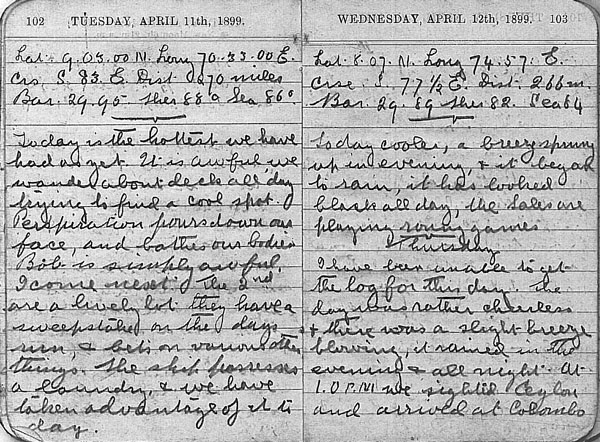 102 TUESDAY, APRIL 11th, 1899.
Lat. 9.03.00 N. Long 70.33.00 E.
Crs S. 83. E. Dist 270 miles
Bar. 29.95. ther 88° Sea 86°
Today is the hottest we have
had as yet. It is awful we
wander about deck all day
trying to find a cool spot.
Perspiration pours down our
face, and bathes our bodies
Bob is simply awful.
I come next. The 2nd
are a lively lot they have a
sweepstake on the days
run, & bets on various other
things. The ship possesses
a laundry, & we have
taken advantage of it to
day.
WEDNESDAY, APRIL 12th, 1899. 103
Lat. 8.07. N. Long 74.57. E.
Crse S. 77½ E. Dist. 266 m.
Bar. 29.89 ther 82. Sea 84
Today cooler, a breeze sprung
up in evening, & it began
to rain, it has looked
black all day, the are
playing games
Thursday
I have been unable to get
the log for this day. The
day was rather cheerless
& there was a slight breeze
blowing, it rained in the
evening & all night. At
1.0 PM we sighted Ceylon
and arrived at Colombo